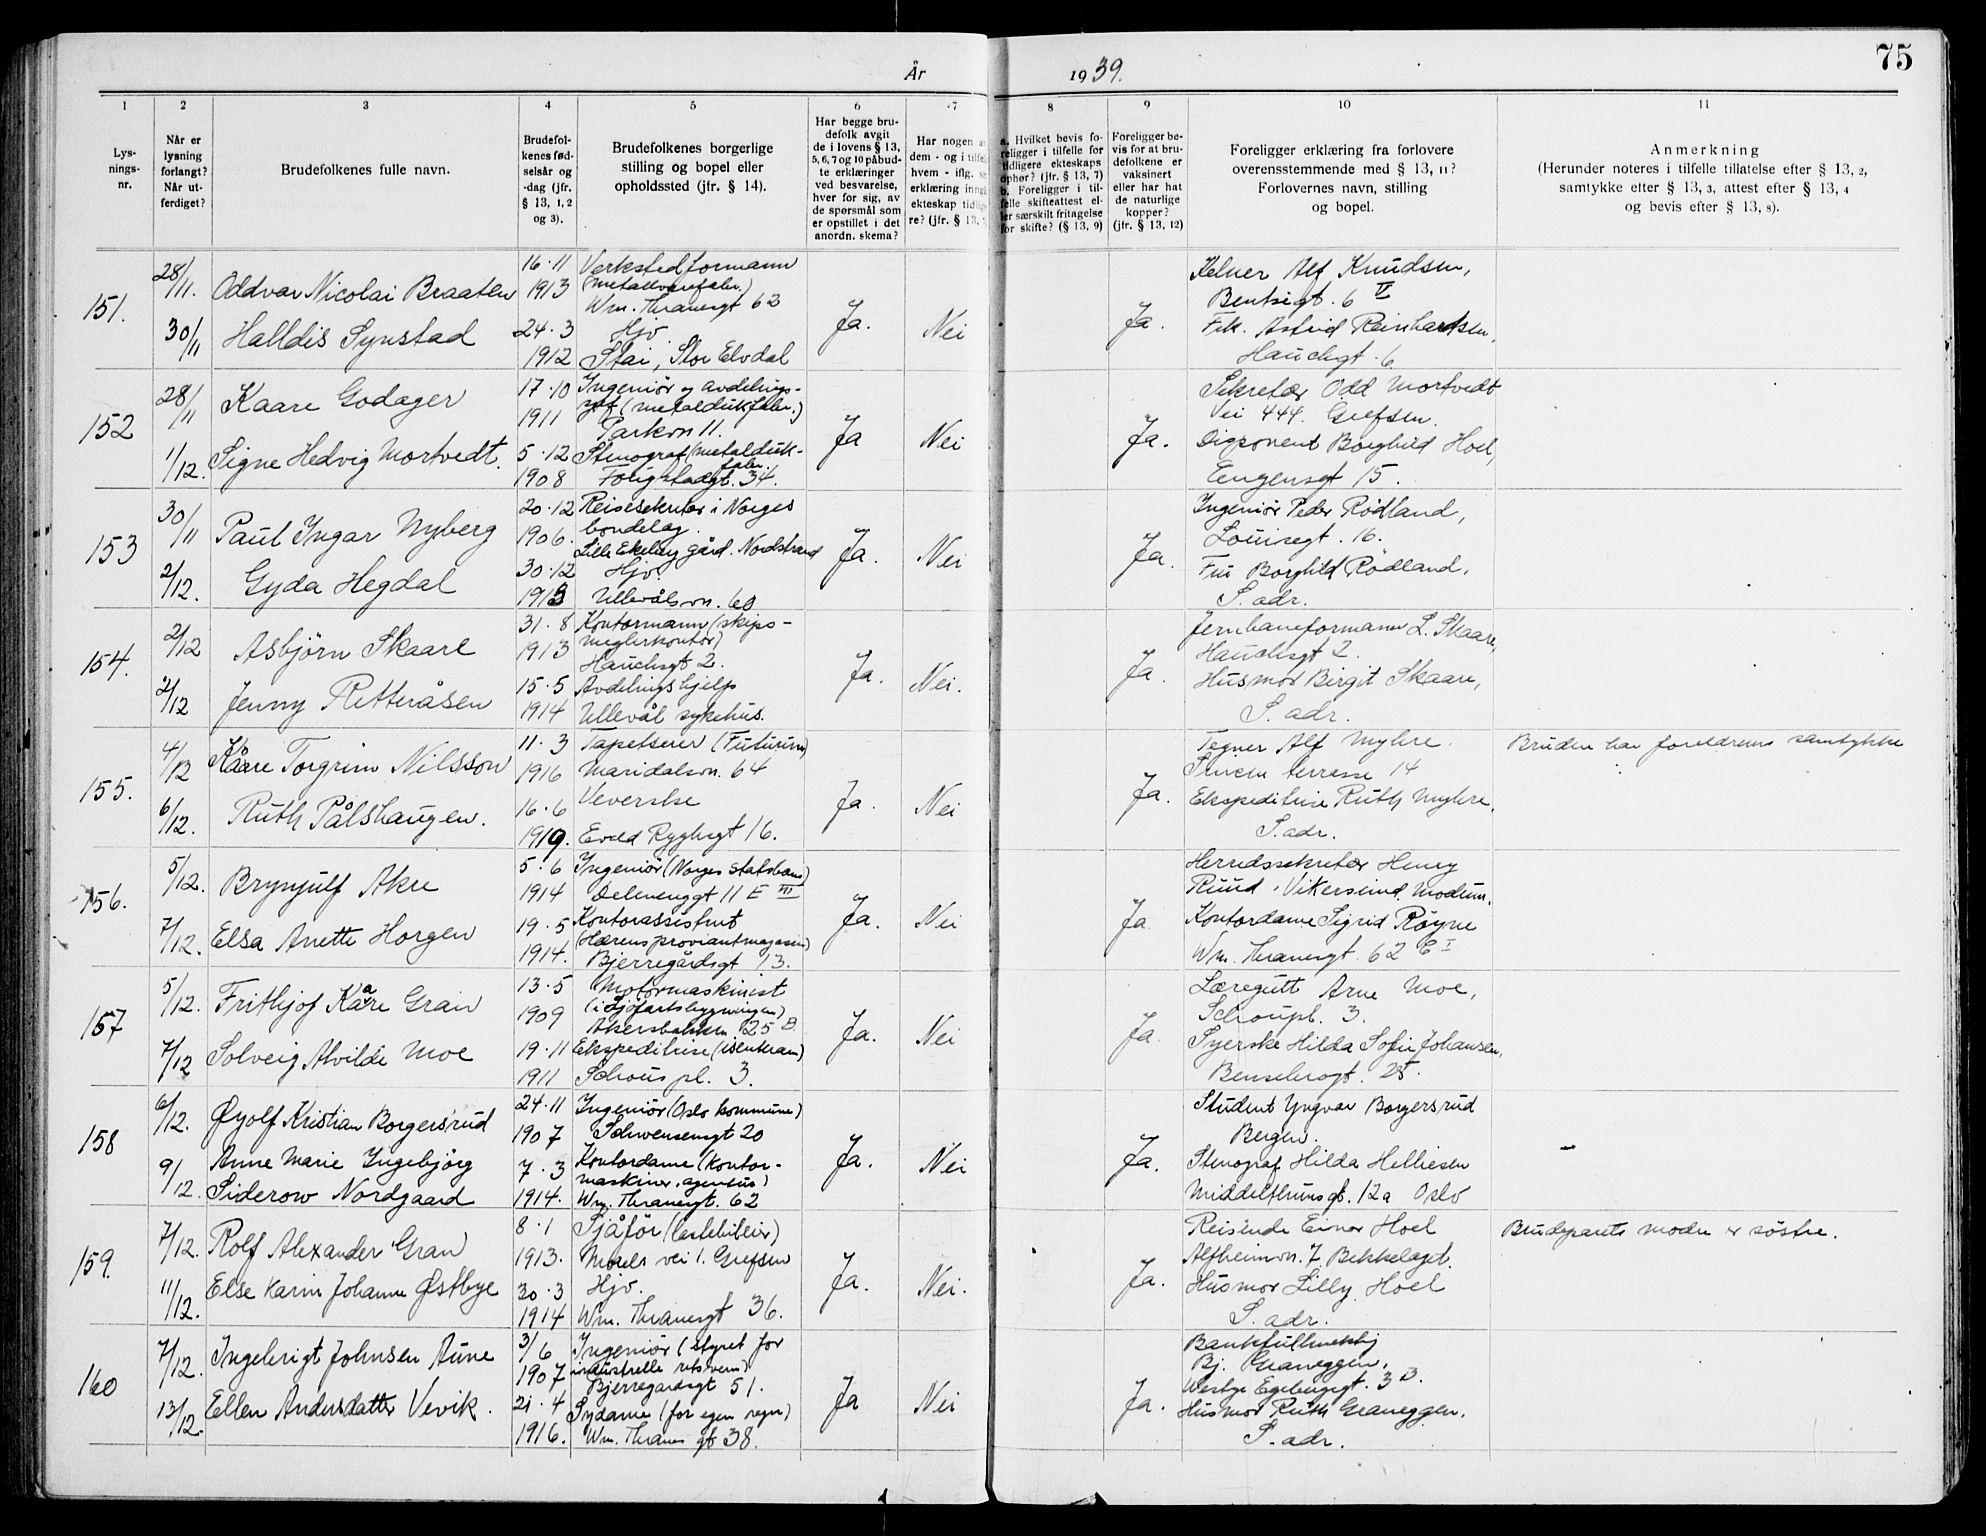 År 1939.
75
1 2 3 4 5 6 7 8 9 10 11
Lys-
nings-
nr.
Når er
lysning
forlangt?
Når ut-
ferdiget?
Brudefolkenes fulle navn.
Brudefol-
kenes fød-
selsår og
-dag (jfr.
§ 13, 1, 2
og 3).
Brudefolkenes borgerlige
stilling og bopel eller
opholdssted (jfr. § 14).
Har begge bru-
defolk avgit
de i lovens § 13,
5, 6, 7 og 10 påbud-
te erklæringer
ved besvarelse,
hver for sig, av
de spørsmål som
er opstillet i det
anordn. skema?
Har nogen a
dem - og i tilfel
hvem - iflg. s
erklæring inng
ekteskap tidlig
re? (jfr. § 13,
a. Hvilket bevis fo-
religger i tilfelle for
tidligere ekteskaps
ophør? (jfr. § 13, 7)
b. Foreligger i til-
felle skifteattest el-
ler særskilt fritagelse
for skifte? (§ 13, 9)
Foreligger be-
vis for at bru-
defolkene er
vaksinert
eller har hat
de naturlige
kopper?
(jfr. § 13, 12)
Foreligger erklæring fra forlovere
overensstemmende med § 13, 11?
Forlovernes navn, stilling
og bopel.
Anmerkning
(Herunder noteres i tilfelle tillatelse efter § 13, 2,
samtykke efter § 13, 3, attest efter § 13, 4
og bevis efter § 13, 8).
151.
28/11.
Oddvar Nicolai Braaten
16.11
1913
Verkstedformann
(metallvarefabr.)
Wm. Thranesgt 62
30/11
Halldis Synstad
24.3
1912
Hjv.
Stai, Stor Elvdal
Ja.
Nei
Ja.
Kelner Alf Knudsen,
Bentsegt. 6 IV
Frk. Astrid Reinhartsen,
Hauchsgt. 6
152
28/11
Kaare Godager
17.10
1911
Ingeniør og avdelings-
sjef (metaldukfabr.)
Parkvn 11.
1/12.
Signe Hedvig Mortvedt.
5.12
1908
Stenograf (metalduk-
fabr.
Fougstadgt. 34.
Ja
Nei
Ja.
Sekretær Odd Mortvedt
Vei 444. Grefsen.
Disponent Borghild Hoel,
Eugensgt 15.
153
30/11
Paul Ingar Nyberg
20.12
1906.
Reisesekretær i Norges
bondelag.
Lille Ekeberg gård. Nordstrand
2/12.
Gyda Hegdal
30.12
1913
Hjv.
Ullevålsvn. 60
Ja.
Nei
Ja.
Ingeniør Peder Rødland,
Louisegt. 16.
Fru Borghild Rødland,
S. adr.
154.
2/12
Asbjørn Skaare
31.8
1913
Kontormann (skips-
meglerkontor)
Hauchsgt 2.
2/12
Jenny Retteråsen
15.5
1914
Avdelingshjelp
Ullevål sykehus.
Ja.
Nei.
Ja.
Jernbaneformann L. Skaare,
Hauchsgt 2.
Husmor Birgit Skaare,
S. adr.
155.
4/12
Kåre Torgrim Nilsson
11.3
1916
Tapetserer (Futurum)
Maridalsvn. 64
6/12.
Ruth Pålshaugen.
16.6
1919.
Veverske
Evald Ryghsgt 16.
Ja.
Nei
Ja.
Tegner Alf Myhre.
Sinsen terrasse 14
Ekspeditrise Ruth Myhre,
S. adr.
Bruden har foreldrenes samtykke
156.
5/12.
Brynjulf Akre
5.6
1914
Ingeniør (Norges statsban.)
Delenenggt 11 E III
7/12.
Elsa Anette Horgen
19.5
1914.
Kontorassistent
(Hærens proviantmagasin)
Bjerregårdsgt 13.
Ja.
Nei
Ja
Herredssekretær Henry
Ruud, Vikersund. Modum.
Kontordame Sigrid Røyne
Wm. Thranesgt. 62 C I
157
5/12.
Frithjof Kaare Gran
13.5
1909
Motormaskinist
(i Sjøfartsbygningen)
Akersbakken 25 B.
7/12
Solveig Alvilde Moe
19.11
1911
Ekspeditrise (isenkram)
Schous pl. 3.
Ja.
Nei
Ja
Læregutt Arne Moe,
Schouspl. 3.
Syerske Hilda Sofie Johansen,
Bensebrogt. 25.
158
6/12.
Øyolf Kristian Borgersrud
24.11
1907
Ingeniør (Oslo kommune)
Schwensensgt 20
9/12.
Anne Marie Ingebjørg
Siderow Nordgaard
7.3
1914.
Kontordame (kontor-
maskiner, agentur)
Wm. Thranesgt. 62
Ja.
Nei
Ja.
Student Yngvar Borgersrud
Bergen.
Stenograf Hilda Helliesen
Middelthunsgt. 12a Oslo
159.
7/12.
Rolf Alexander Gran
8.1
1913.
Sjåfør (lastebileier)
Morels vei 1. Grefsen
11/12.
Else Karin Johanne Østbye
30.3
1914
Hjv.
Wm. Thranesgt 36.
Ja.
Nei.
Ja.
Reisende Einar Hoel
Alfheimvn. 7 Bekkelaget.
Husmor Lilly Hoel
S. adr.
Brudeparets mødre er søstre.
160
7/12.
Ingebrigt Johnsen Aune
3/6
1907
Ingeniør (styret for
industrielle retsvern)
Bjerregårdsgt 51.
13/12.
Ellen Andersdatter Vevik.
21.4
1916.
Sydame (for egen regn)
Wm. Thranes gt 38.
Ja
Nei
Ja.
Bankfullmektig
Bj. Graneggen,
Westye Egebergsgt. 3 B.
Husmor Ruth Graneggen.
S. adr.